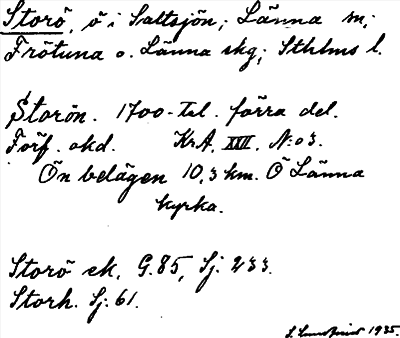 Storö, ö i Saltsjön; Länna sn;
Frötuna o. Länna skg; Sthlms l.
Storön. 1700-tal. förra del.
Förf. okd. Kr.A. XXII. N:o 3.
Ön belägen 10,3 km. Ö Länna
kyrka.
Storö ek, G.85, Sj. 233.
Storh. Sj: 61.
1935.